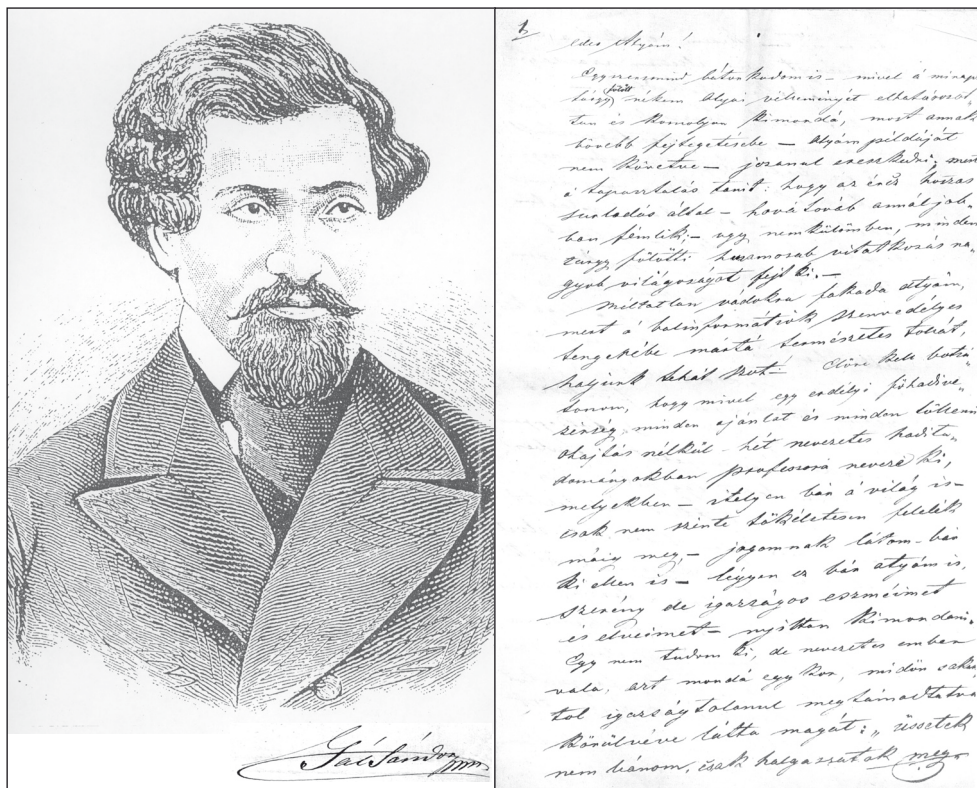 Gál Sándor
1
édes Atyám!
Egyszersmind bátorkodom is – mivel a minap
tárgy fölött nékem Atyai véleményét elhatározot-
tan és komolyan kimondá, most annak
bővebb fejtegetésébe – Atyám példáját
nem követve – józanul ereszkedni; mert
a tapasztalás tanit: hogy az érez hosszas
surladás által – hovátováb annál job-
ban fémlik; – ugy nemkülömben, minden
tárgy fölötti huzamosab vitatkozás na-
gyob világoságot fejt ki. –
Miltatlan vádokra fakada Atyám,
mert a balinformátiók szenvedélyes
tengerébe mártá természetes tollát,
hagyjunk tehát
tanom, hogy mivel egy erdélyi főhadive-
zérség minden ajánlat és minden
ohajtás nélkül hét nevezetes hadita-
dományokban professorá neveze ki,
melyekben – itélyen bár a világ is –
csak nem szinte tökéletesen felelék
máig meg – jogomnak látom – bár
ki ellen is – légyen ez bár atyám is,
szerény de igazságos eszméimet
és elveimet – nyiltan kimondani.
Egy nem tudom ki, de nevezetes ember
vala, azt mondá egykor, midőn
tol igazságtalanul megtámadtatva
körülvéve látta magát: „üssetek
nem bánom, csak halgassatok meg